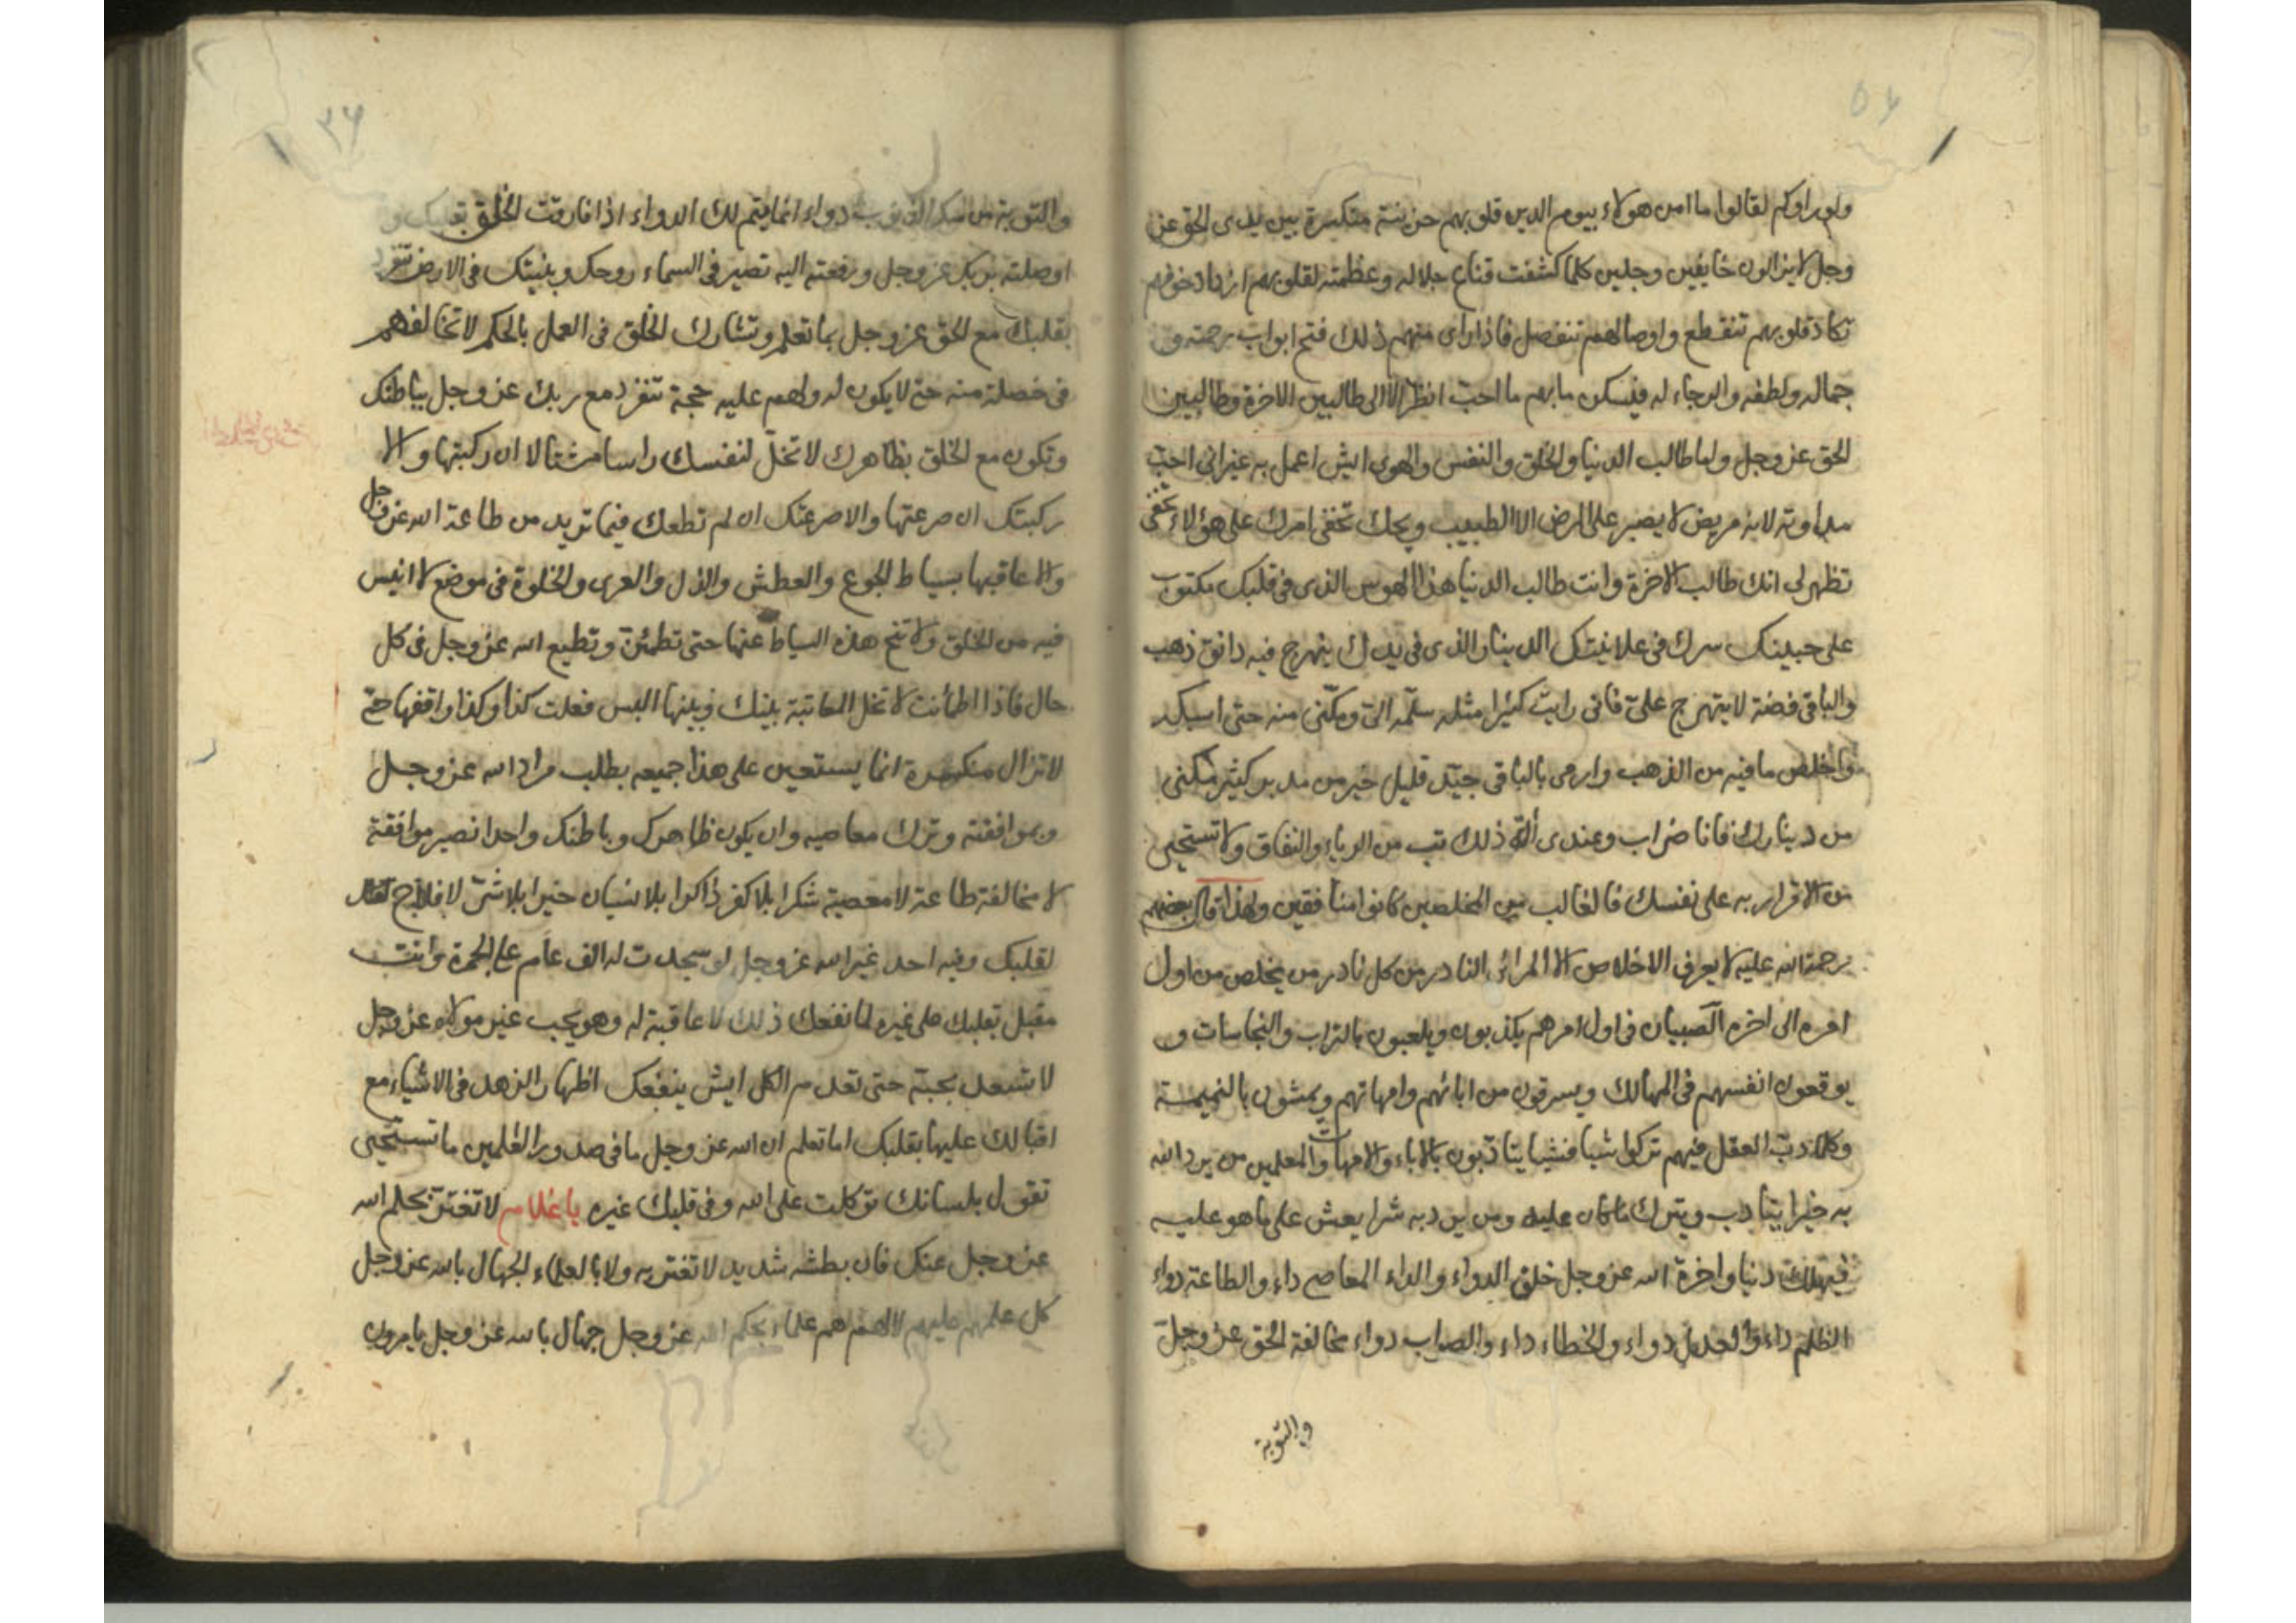 ٥٦
ولو راوكم لقالوا ما امن هولاء بيوم الدين قلوبهم حزينة منكسرة بين يدى الحق عز
وجل لا يزالون خايفين وجلين كلما كشفت قناع جلاله وعظمته لقلوبهم ازداد خوفهم
تكاد قلوبهم تنقطع واوصالهم تنفصل فاذا راى منهم ذلك فتح ابواب رحمته و
جماله ولطفه والرجاء له فيسكن ما بهم ما احب انظر الا الى طالبين الاخرة وطالبين
الحق عز وجل واما طالب الدنيا والخلق والنفس والهوى ايش اعمل به غير انى احب
مداوته لانه مريض لا يصبر على المرض الا الطبيب ويحك تخفى امرك على هؤلاء تخفى
تظهر لى انك طالب الاخرة وانت طالب الدنيا هذا الهوس الذى فى قلبك مكتوب
على جبينك سرك فى علانيتك الدينار الذى فى يدك بهرج فيه دانق ذهب
والباقى فضة لا يتبهرج علىّ فانى رايت كثيرا مثله سلّمه الىّ ومكّنى منه حتى اسبكه
واخلص ما فيه من الذهب وارمى بالباقى جيّد قليل خير من مدبر كثير مكنى
من دينارك فانا ضراب وعندى ألة ذلك تب من الرياء والنفاق ولا تستحيى
من الاقرار به على نفسك فالغالب من المخلصين كانوا منافقين ولهذا قال بعضهم
رحمة الله عليه لا يعرف الاخلاص الا المرائ النادر من كل نادر من يخلص من اول
امره الى اخره الصبيان فى اول امرهم يكذبون ويلعبون بالتراب والنجاسات و
يوقعون انفسهم فى المهالك ويسرقون من ابائهم وامهاتهم ويمشون بالنميمة
وكلما دبّ العقل فيهم تركوا شيا فشيا يتادّبون بالاباء والامهات والمعلمين من يرد الله
به خيرا يتادب ويترك ما كان عليه ومن يرد به شرا يعش على ما هو عليه
فيهلك دنيا واخرة الله عز وجل خلق الدواء والداء المعاصى داء والطاعة دواء
الظلم داء والعدل دواء والخطاء داء والصواب دواء مخالفة الحق عز وجل
والتوبة
٣٦
والتوبة من سكر الذنوب دواء انما يتم لك الدواء اذا فارقت الخلق بقلبك و
اوصلته بربك عز وجل ورفعته اليه تصير فى السماء روحك وبنيتك فى الارض تنفرد
بقلبك مع الحق عز وجل بما تعلم وتشارك الخلق فى العمل بالحكم لا تخالفهم
فى خصلة منه حتى لا يكون له ولهم عليه حجة تنفرد مع ربك عز وجل بباطنك
وتكون مع الخلق بظاهرك لا تخلّ لنفسك راسا مشتالا ان ركبتها والا
ركبتك ان صرعتها والا صرعتك ان لم تطعك فيما تريد من طاعة الله عز وجل
والا عاقبها بسياط الجوع والعطش والذل والعرى والخلوة فى موضع لا انيس
فيه من الخلق ولا تنح هذه السياط عنها حتى تطمئن وتطيع الله عز وجل فى كل
حال فاذا اطمأنت لا تخل المعاتبة بينك وبينها اليس فعلت كذا وكذا واقفها حتى
لا تزال منكسرة انما يستعين على هذا جميعه بطلب مراد الله عز وجل
وبموافقته وترك معاصيه وان يكون ظاهرك وباطنك واحدا تصير موافقة
لا مخالفة طاعة لا معصية شكرا بلا كفر ذاكرا بلا نسيان خيرا بلا شرّ لا فلاح
لقلبك وفيه احد غير الله عز وجل لو سجدت له الف عام على الجمرة وانت
مقبل بقلبك على غيره لما نفعك ذلك لا عاقبة له وهو يحب غير مولاه عز وجل
لا تسعد بحبه حتى تعدم الكل ايش ينفعك اظهار الزهد فى الاشياء مع
اقبالك عليها بقلبك اما تعلم ان الله عز وجل ما فى صدور العلمين ما تستحيى
تقول بلسانك توكلت على الله وفى قلبك غيره يا غلام لا تغتر بحلم الله
عز وجل عنك فان بطشه شديد لا تغتر به ولا بالعلماء الجهال بالله عز وجل
كل علمهم عليهم لا لهم هم علماء بحكم الله عز وجل جهال بالله عز وجل يامرون